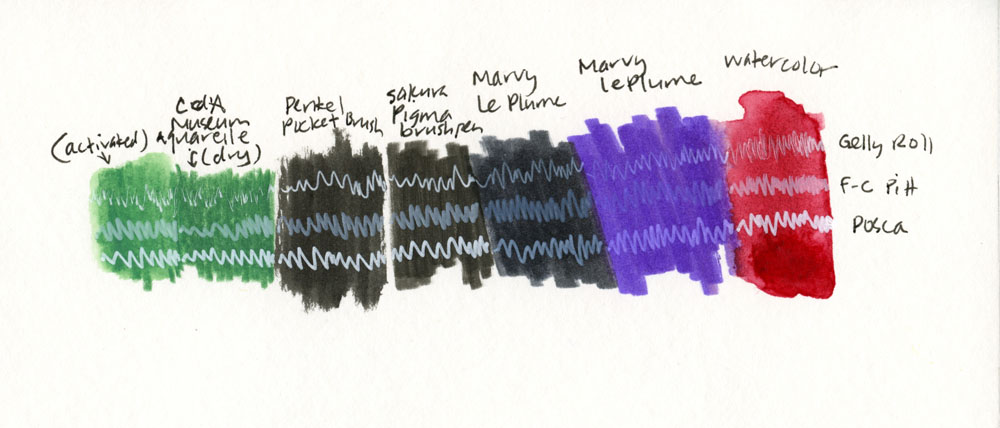 (activated)
CdA
Museum
aquarelle
(dry)
Pentel
Pocket Brush
Sakura
Pigma
brushpen
Marvy
Le Plume
Marvy
Le Plume
watercolor
Gelly Roll
F-C Pitt
Posca